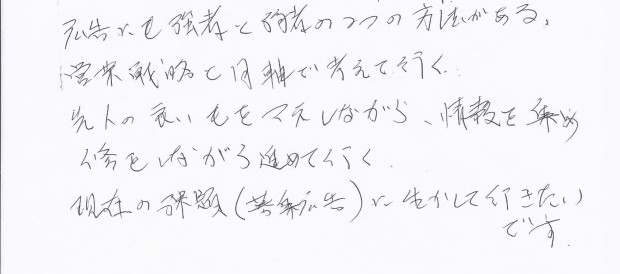 広告にも強者と弱者の2つの方法がある、
営業戦略と同軸で考えて行く.
先人の良いものをマネしながら、情報を集め
修正しながら進めて行く.
現在の課題(募集広告)に生かして行きたい
です.